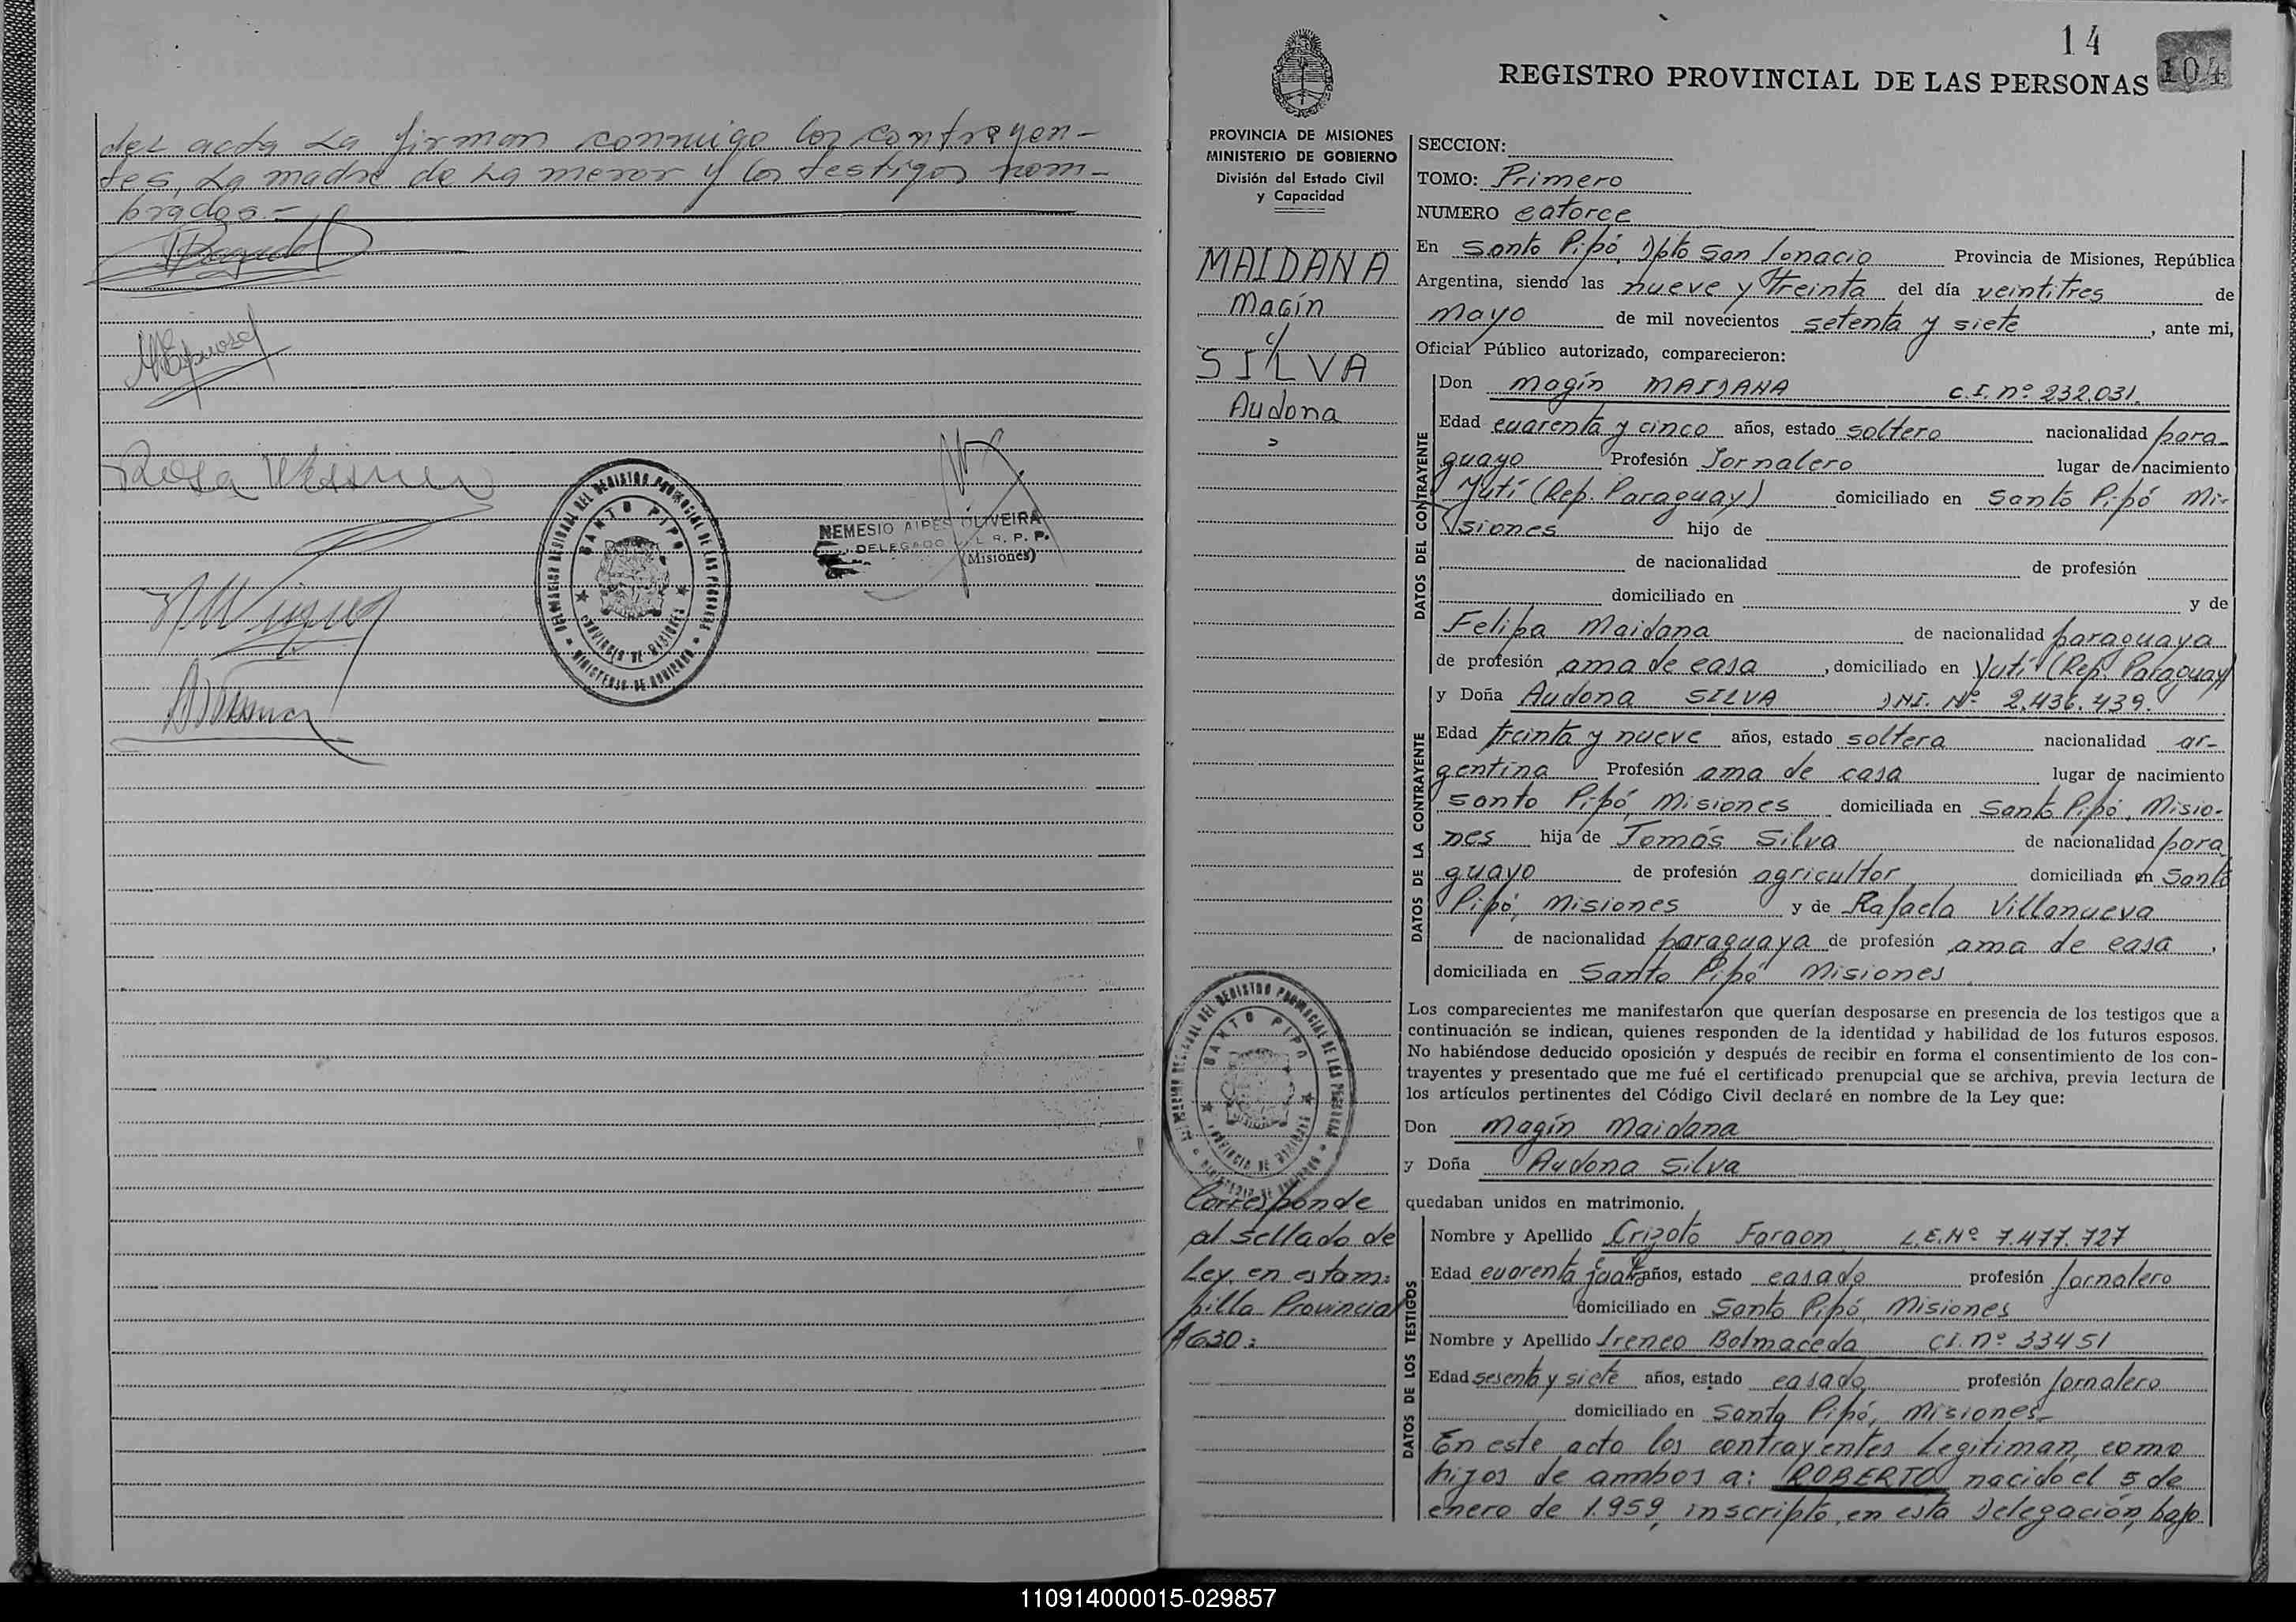 del acta La firman conmigo los contrayen-
tes, La madre de La menor y los testigos nom-
brados.-
Rosa
DELEGACION REGIONAL DEL REGISTRO PROVINCIAL DE LAS PERSONAS
SANTO PIPO
PROVINCIA DE MISIONES
MINISTERIO DE GOBIERNO
NEMESIO AIRES OLIVEIRA
DELEGADO DEL R. P. P.
(Misiones)
14
104
REGISTRO PROVINCIAL DE LAS PERSONAS
PROVINCIA DE MISIONES
MINISTERIO DE GOBIERNO
División del Estado Civil
y Capacidad
MAIDANA
Magín
c/
SILVA
Audona
DELEGACION REGIONAL DEL REGISTRO PROVINCIAL DE LAS PERSONAS
SANTO PIPO
PROVINCIA DE MISIONES
MINISTERIO DE GOBIERNO
Corresponde
al sellado de
Ley en estam-
pilla Provincial
630:
SECCION:
TOMO: Primero
NUMERO catorce
En Santo Pipó, Dpto San Ignacio Provincia de Misiones, República
Argentina, siendo las nueve y treinta del día veintitres de
mayo de mil novecientos setenta y siete, ante mi,
Oficial Público autorizado, comparecieron:
DATOS DEL CONTRAYENTE
Don Magín MAIDANA C.I. nº 232.031.
Edad cuarenta y cinco años, estado soltero nacionalidad para-
guayo Profesión Jornalero lugar de nacimiento
Yutí (Rep. Paraguay) domiciliado en Santo Pipó Mi-
siones hijo de
de nacionalidad de profesión
domiciliado en y de
Felipa Maidana de nacionalidad paraguaya
de profesión ama de casa, domiciliado en Yutí (Rep. Paraguay)
DATOS DE LA CONTRAYENTE
y Doña Audona SILVA D.N.I. Nº 2.436.439.
Edad treinta y nueve años, estado soltera nacionalidad ar-
gentina Profesión ama de casa lugar de nacimiento
Santo Pipó, Misiones domiciliada en Santo Pipó, Misio-
nes hija de Tomás Silva de nacionalidad para
guayo de profesión agricultor domiciliada en Santo
Pipó, Misiones y de Rafaela Villanueva
de nacionalidad paraguaya de profesión ama de casa,
domiciliada en Santo Pipó Misiones
Los comparecientes me manifestaron que querían desposarse en presencia de los testigos que a
continuación se indican, quienes responden de la identidad y habilidad de los futuros esposos.
No habiéndose deducido oposición y después de recibir en forma el consentimiento de los con-
trayentes y presentado que me fué el certificado prenupcial que se archiva, previa lectura de
los artículos pertinentes del Código Civil declaré en nombre de la Ley que:
Don Magín Maidana
y Doña Audona Silva
quedaban unidos en matrimonio.
DATOS DE LOS TESTIGOS
Nombre y Apellido Crizoto Faraon L.E.Nº 7.477.727
Edad cuarenta y cuatro años, estado casado profesión Jornalero
domiciliado en Santo Pipó, Misiones
Nombre y Apellido Ireneo Balmaceda CI. nº 33451
Edad sesenta y siete años, estado casado profesión Jornalero
domiciliado en Santo Pipó, Misiones-
En este acto los contrayentes Legitiman como
hijos de ambos a: ROBERTO nacido el 5 de
enero de 1.959, inscripto en esta Delegación, bajo
110914000015-029857